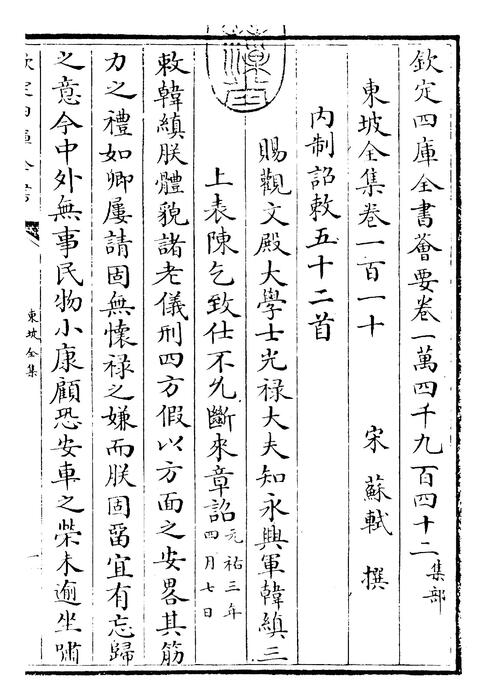 欽定四庫全書薈要卷一萬四千九百四十二集部
東坡全集卷一百一十
宋 蘇軾 撰
內制詔敕五十二首
賜觀文殿大學士光祿大夫知永興軍韓縝三
上表陳乞致仕不允斷來章詔元祐三年四月七日
敕韓縝朕體貌諸老儀刑四方假以方面之安畧其筋
力之禮如卿屢請固無懷祿之嫌而朕固留宜有忘歸
之意今中外無事民物小康顧恐安車之榮未逾坐嘯
欽定四庫全書
東坡全集
一